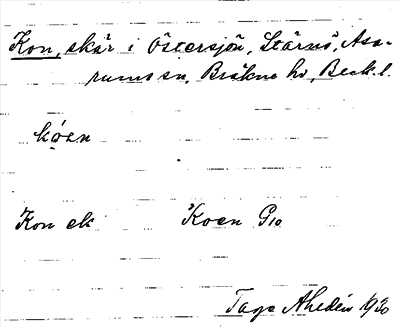 Kon, skär i Östersjön, Stärnö, Asa-
rums sn, Bräkne hd, Blek. l.
køen
Kon ek Koen G10
Tage Ahldén 1930